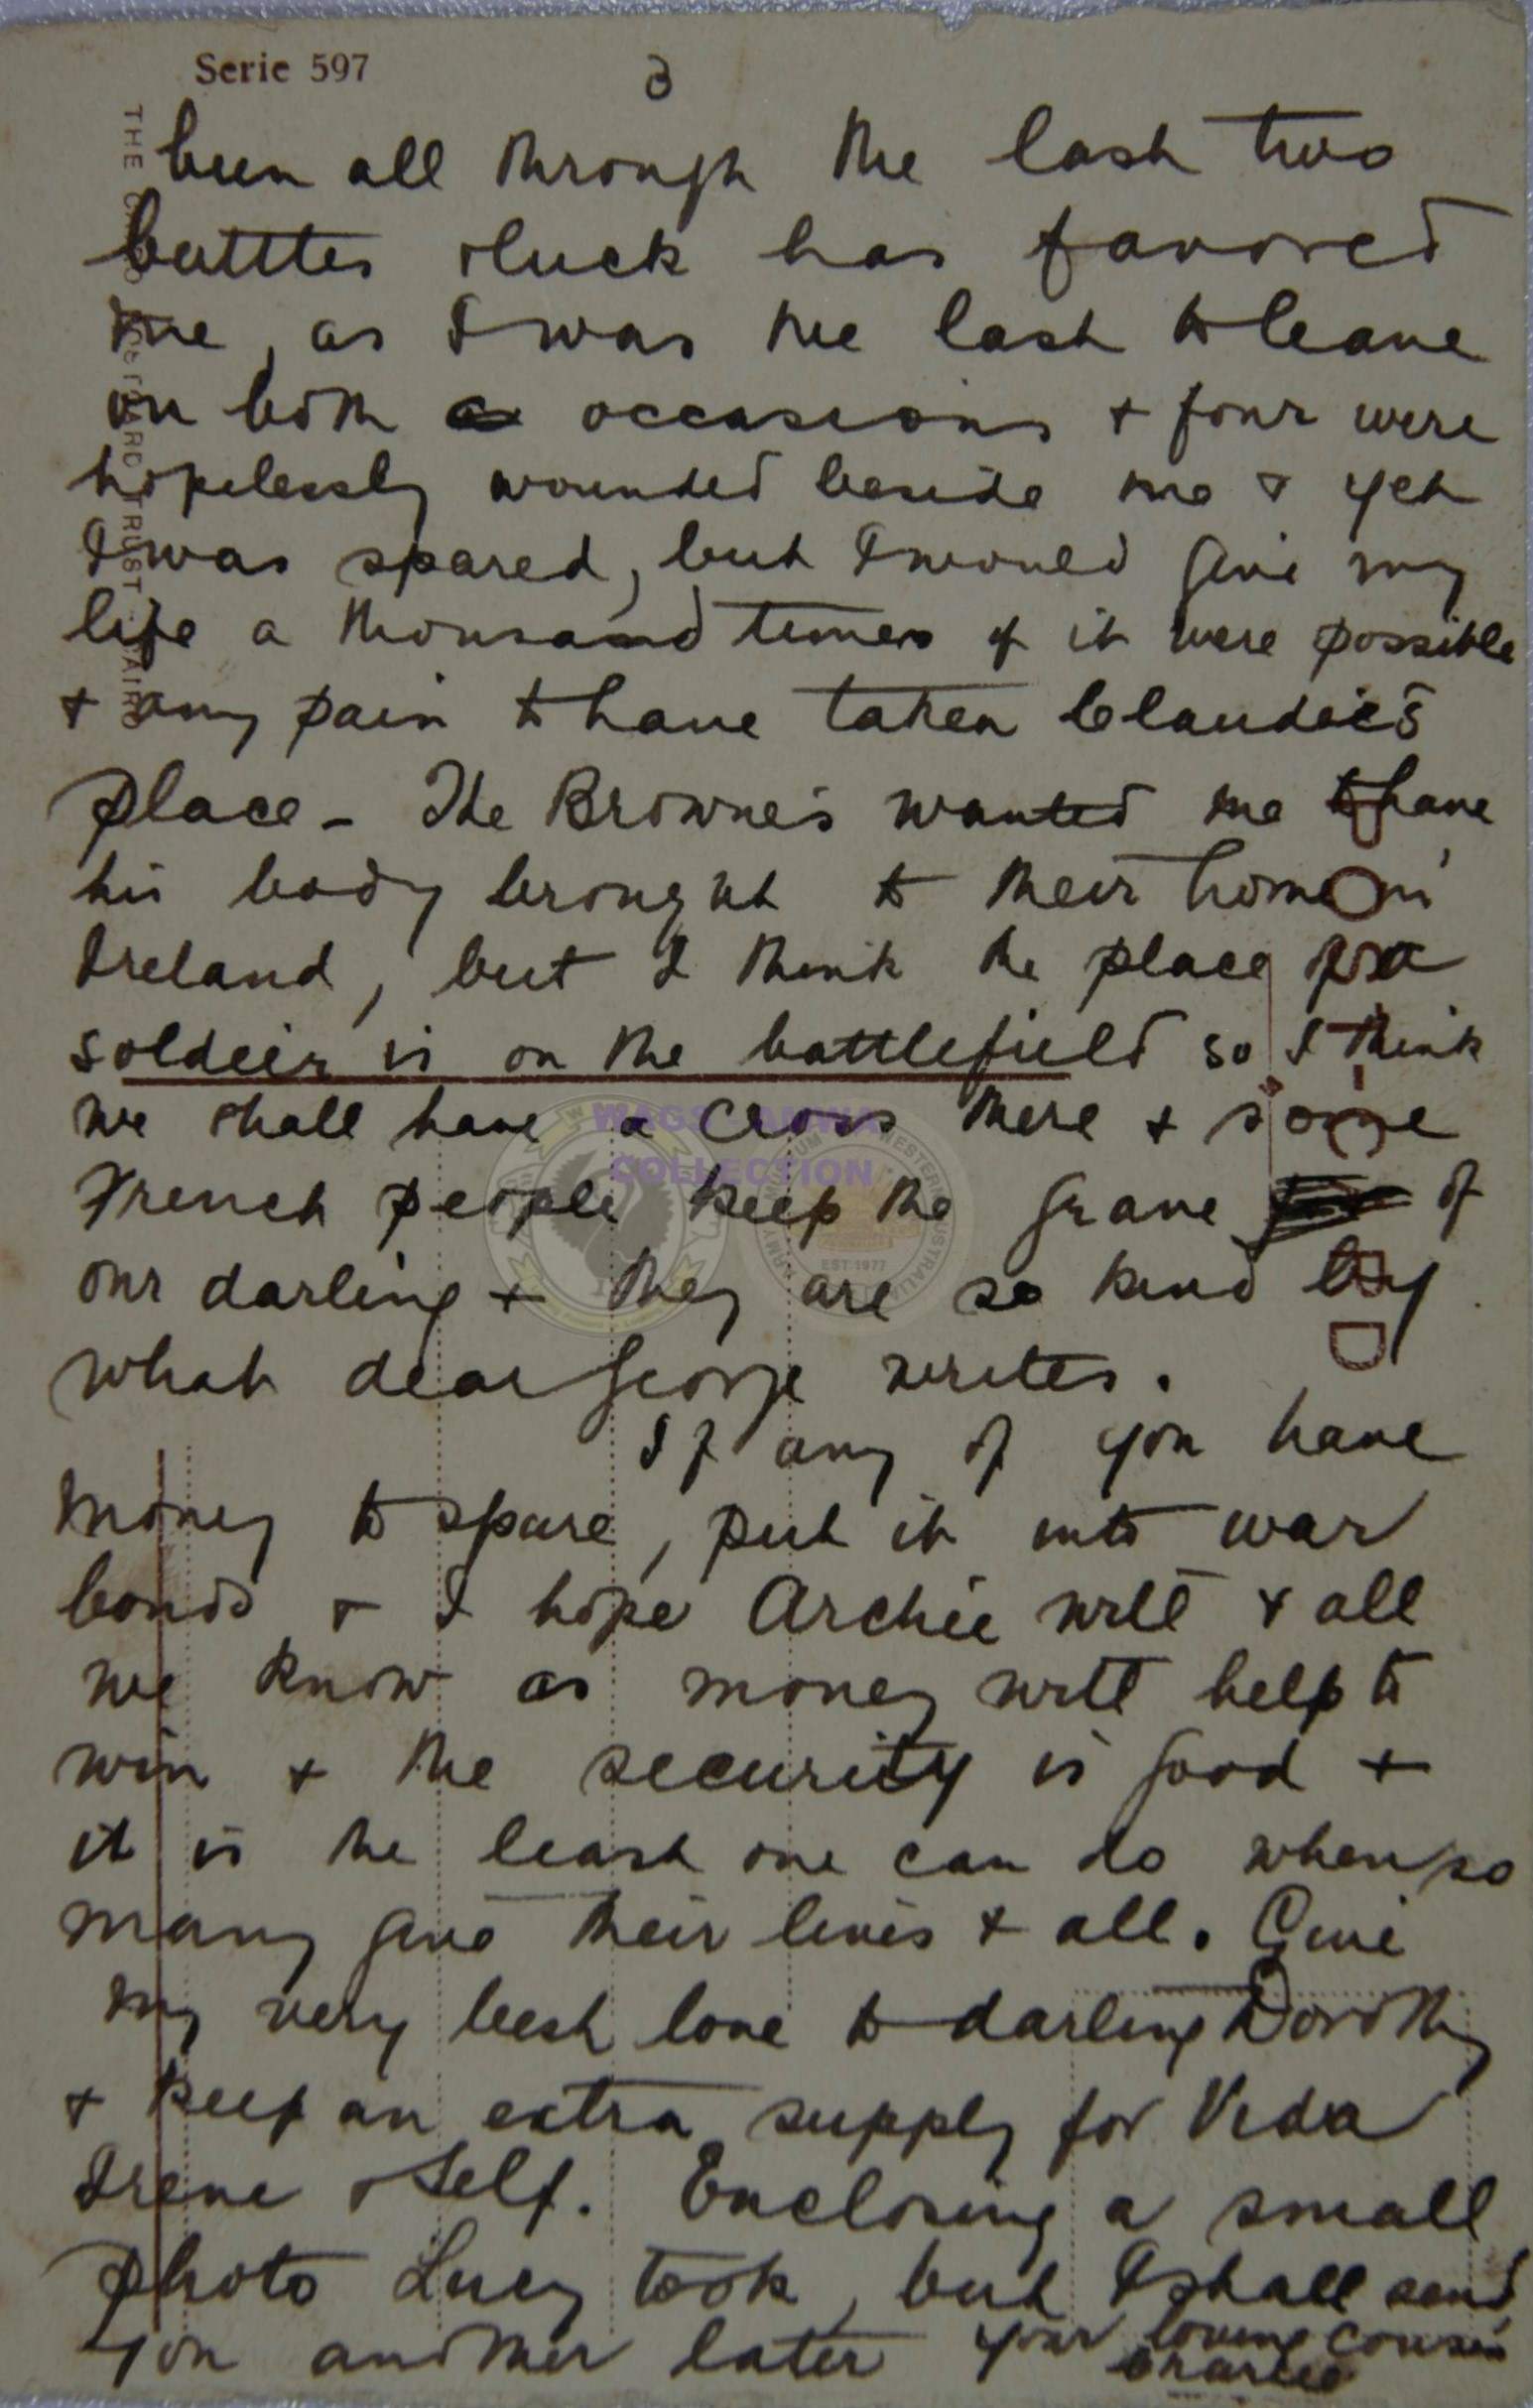 Serie 597
3
been all through the last two
battles & luck has favored
me, as I was the last to leave
on both occasions + four were
hopelessly wounded beside me + yet
I was spared, but I would give my
life a thousand times if it were possible
+ any pain to have taken Claudie's
place - The Browne's wanted me to have
his body brought to their home in
Ireland, but I think the place for a
soldier is on the battlefield so I think
we shall have a cross there + some
French people keep the grave of
our darling + they are so kind by
what dear George writes.
If any of you have
money to spare, put it into war
bonds + I hope Archie will + all
we know as money will help to
win + the security is good +
it is the least one can do when so
many give their lives + all. Give
my very best love to darling Dorothy
+ keep an extra supply for Veda
Irene & self. Enclosing a small
photo Lucy took, but I shall send
you another later your loving cousin
Charlie
WAGS AMWA
COLLECTION
EST 1977